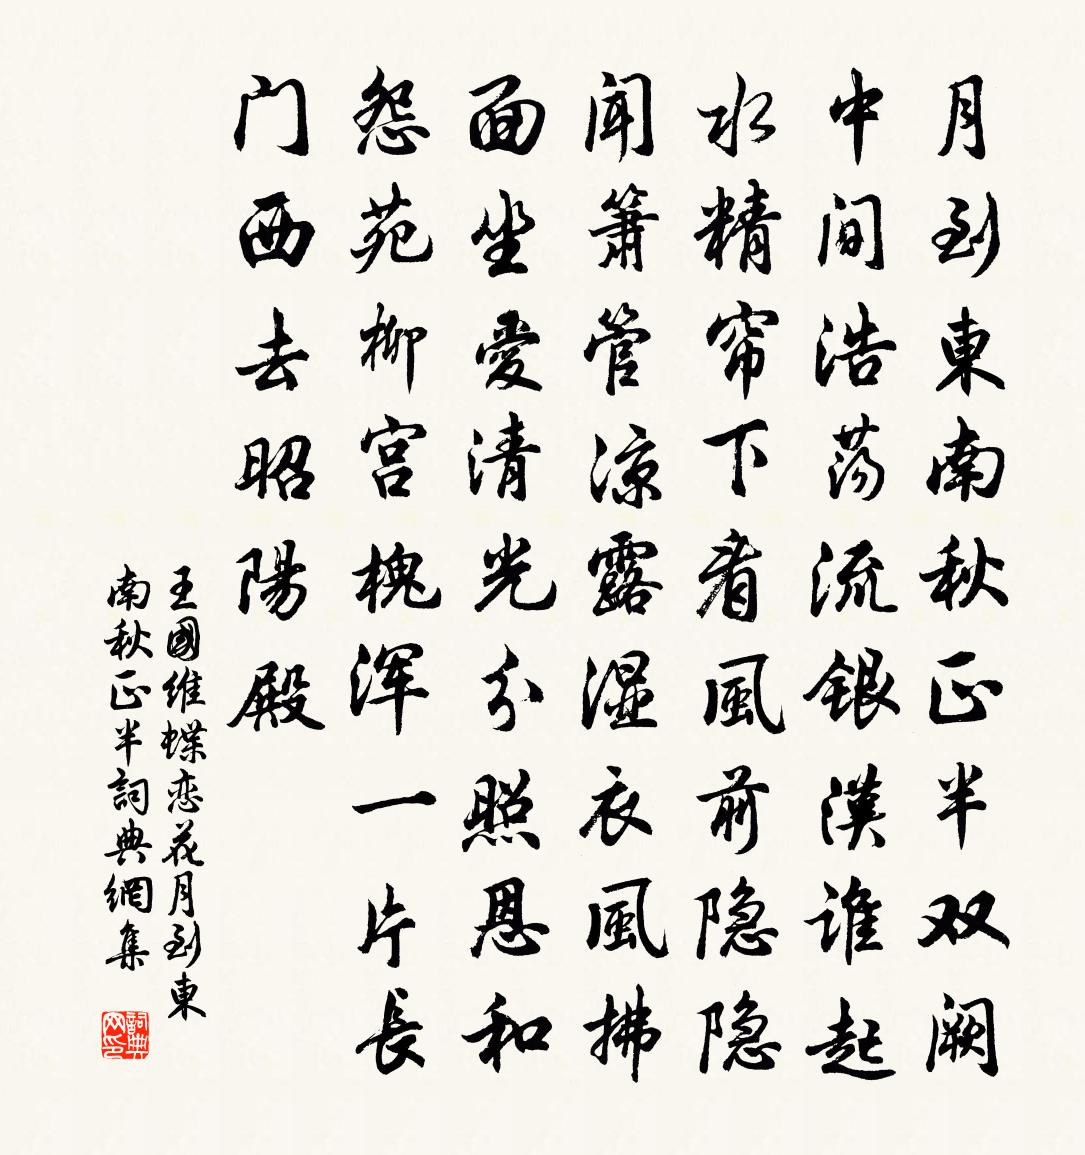 月到東南秋正半双阙
中间浩荡流銀漢谁起
水精帘下看風前隐隐
闻簫管凉露湿衣風拂
面坐愛清光分照恩和
怨苑柳宫槐浑一片長
门西去昭陽殿
王國维蝶恋花月到東
南秋正半詞典網集
詞典网印